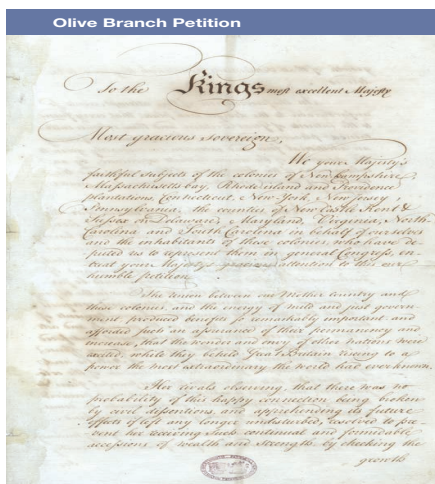 Olive Branch Petition
To the Kings most excellent Majesty
Most gracious Sovereign,
We your Majesty's
faithful subjects of the colonies of New-hampshire,
Massachusetts-bay, Rhode island and Providence
plantations, Connecticut, New-York, New Jersey,
Pennsylvania, the counties of New Castle Kent &
Sussex on Delaware, Maryland, Virginia, North-
Carolina and South Carolina in behalf of ourselves
and the inhabitants of these colonies, who have de-
puted us to represent them in general Congress, en-
treat your Majesty's gracious attention to this our
humble petition.
The union between our Mother country and
these colonies, and the energy of mild and just govern-
ment, produced benefits so remarkably important and
afforded such an assurance of their permanency and
increase, that the wonder and envy of other nations were
excited, while they beheld Great Britain riseing to a
power the most extraordinary the world had ever known.
Her rivals observing, that there was no
probability of this happy connection being broken
by civil dissentions, and apprehending its future
effects if left any longer undisturbed, resolved to pre-
vent her receiving such continual and formidable
accessions of wealth and strength, by checking the
growth